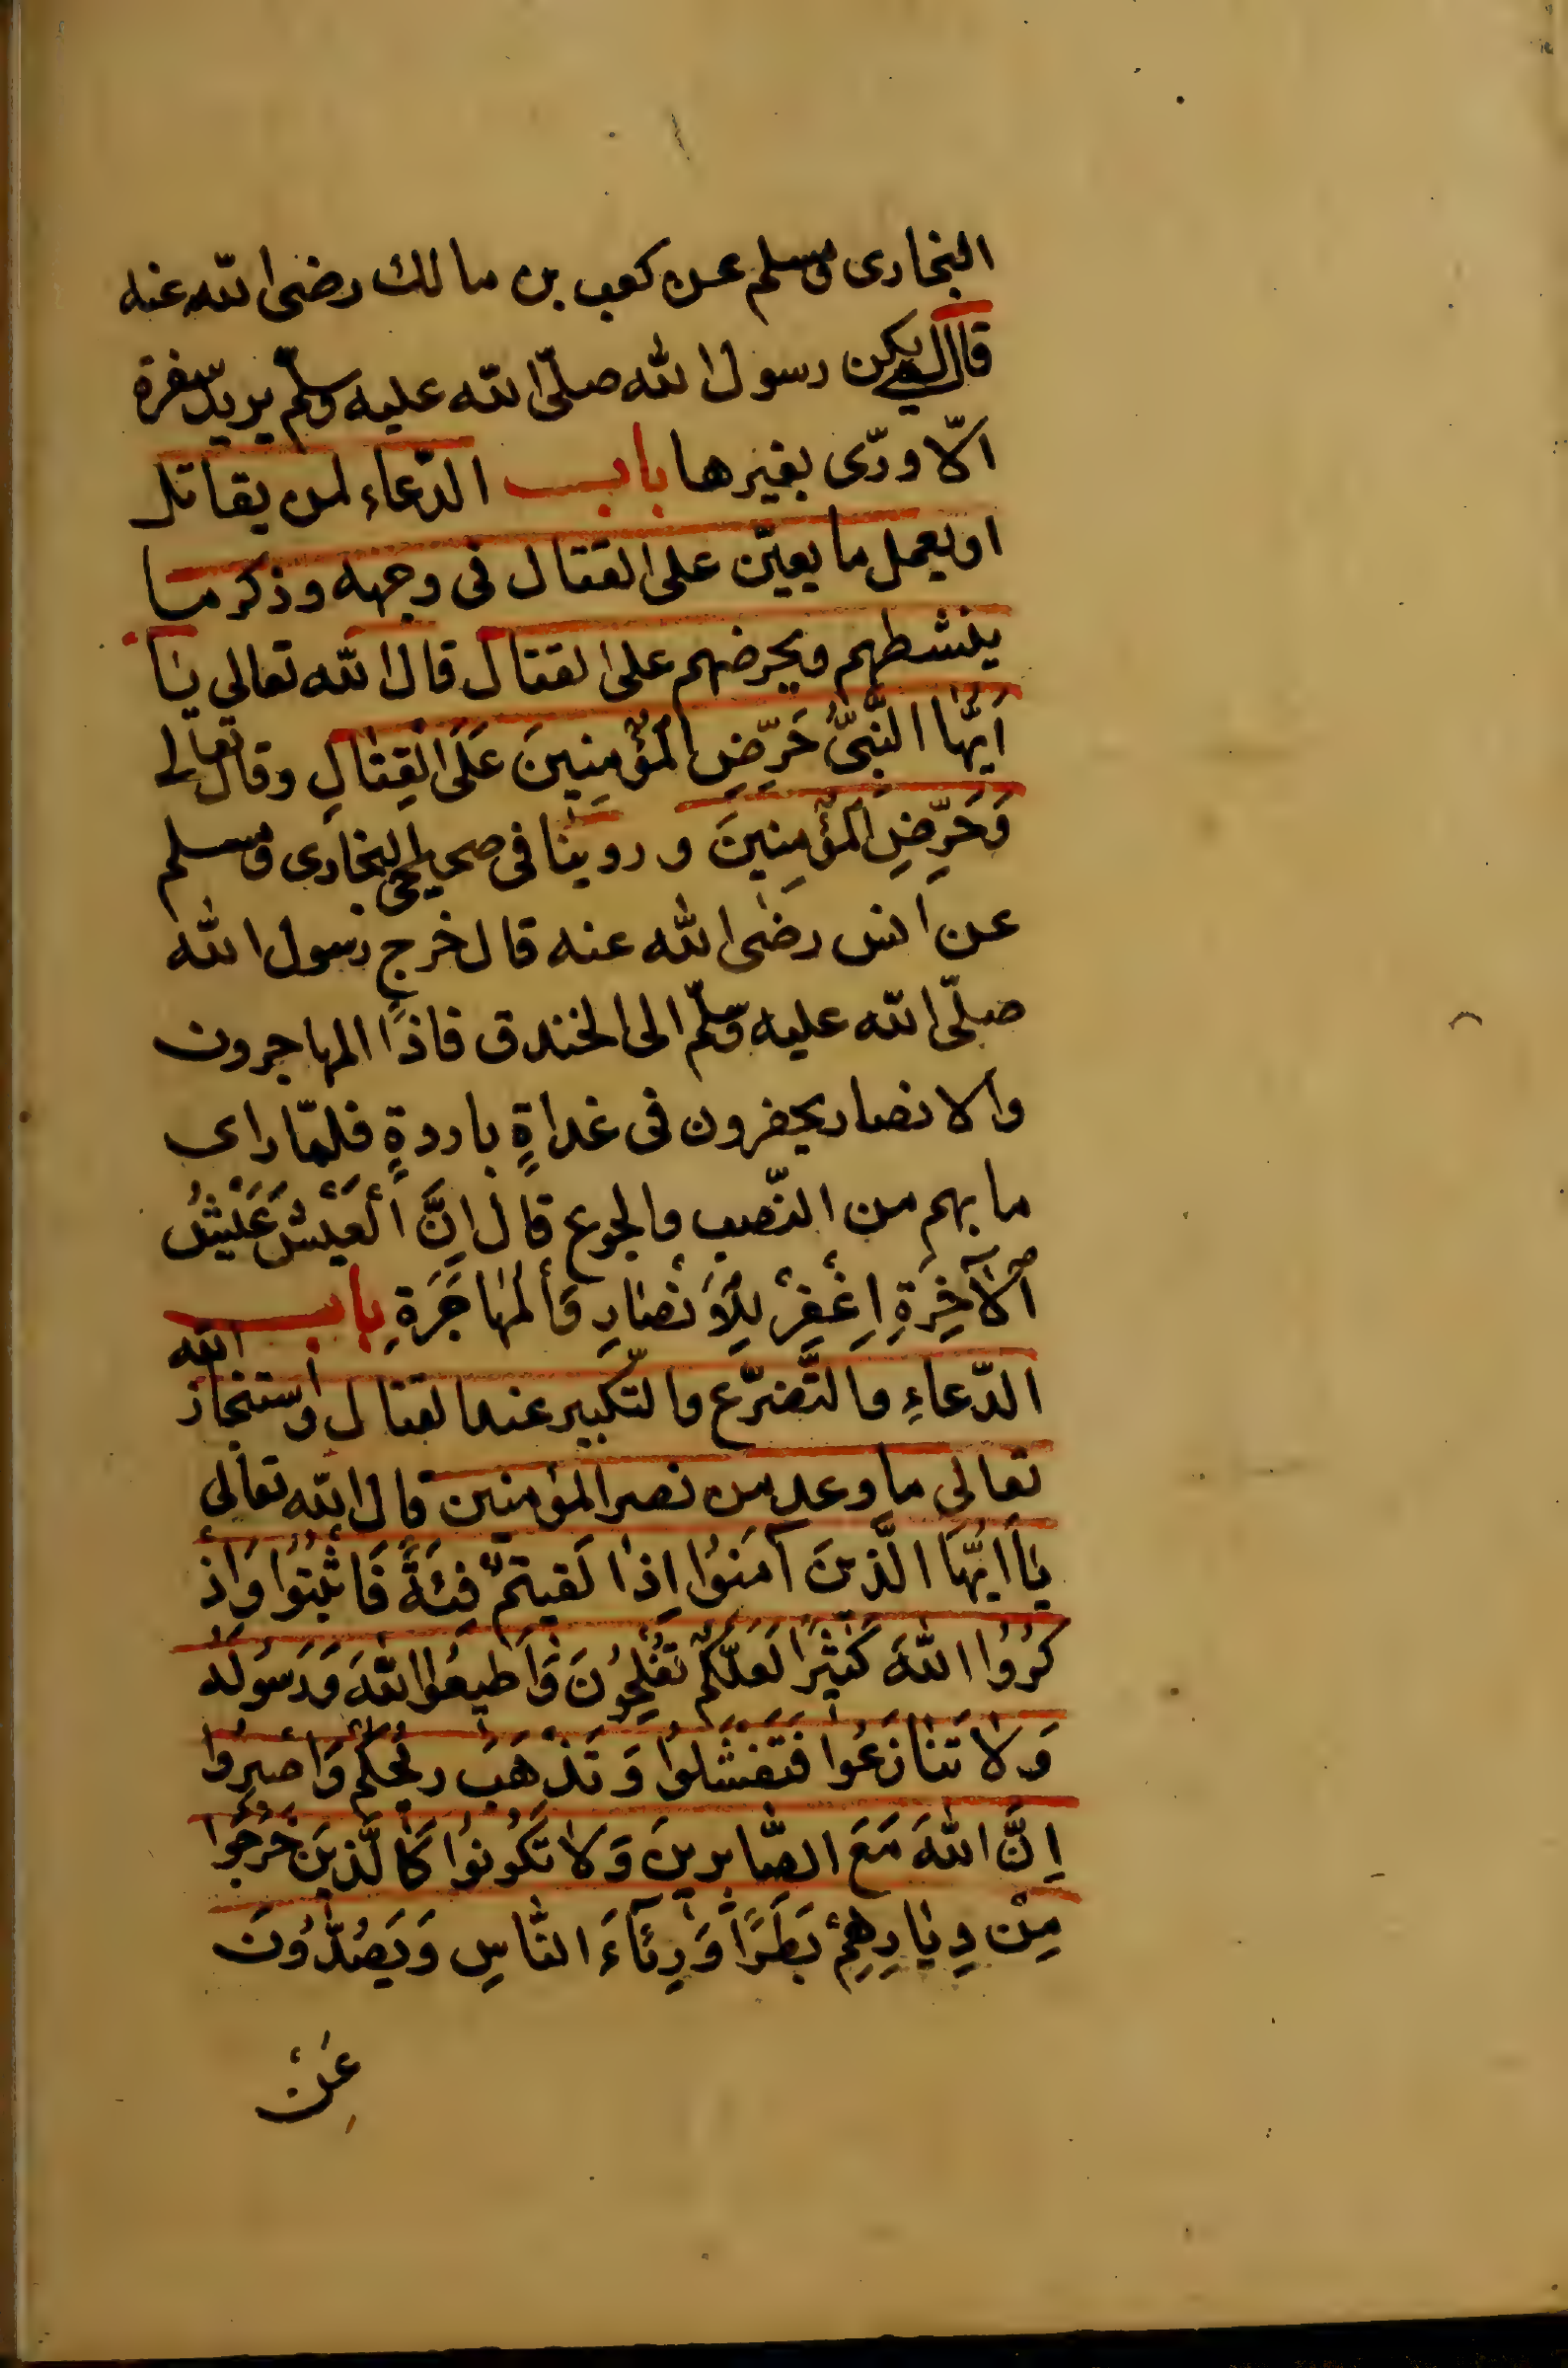 البخارى ومسلم عن كعب بن مالك رضى الله عنه
قال لم يكن رسول الله صلّى الله عليه وسلّم يريد سفرة
الّا ورّى بغيرها باب الدّعاء لمن يقاتل
او يعمل ما يعيّن على القتال فى وجهه وذكر ما
ينشطهم ويحرضهم على القتال قال الله تعالى يَا
اَيُّهَا النَّبِىُّ حَرِّضِ الْمُؤْمِنِينَ عَلَى الْقِتَالِ وقال تعالى
وَحَرِّضِ الْمُؤْمِنِينَ وروينا فى صحيحى البخارى ومسلم
عن انس رضى الله عنه قال خرج رسول الله
صلّى الله عليه وسلّم الى الخندق فاذا المهاجرون
والانصار يحفرون فى غداةٍ باردةٍ فلمّا راى
ما بهم من النّصب والجوع قال اِنَّ الْعَيْشَ عَيْشُ
الْآخِرَةِ اِغْفِرْ لِلْاَنْصَارِ وَالْمُهَاجَرَةِ باب
الدّعاءِ والتّضرّع والتّكبير عند القتال واستنجاز الله
تعالى ما وعد من نصر المؤمنين قال الله تعالى
يَا اَيُّهَا الَّذِينَ آمَنُوا اِذَا لَقيتمْ فِئَةً فَاثْبُتُوا وَاذْ
كُرُوا اللّٰهَ كَثِيْرًا لَعَلَّكُمْ تُفْلِحُونَ وَاَطِيعُوا اللّٰهَ وَرَسُولَهُ
وَلَا تَنَازَعُوا فَتَفْشَلُوا وَتَذْهَبَ رِيحُكُمْ وَاصْبِرُوا
اِنَّ اللّٰهَ مَعَ الصَّابِرِينَ وَلَا تَكُونُوا كَالَّذِينَ خَرَجُوا
مِنْ دِيَارِهِمْ بَطَرًا وَرِئَآءَ النَّاسِ وَيَصُدُّونَ
عَنْ